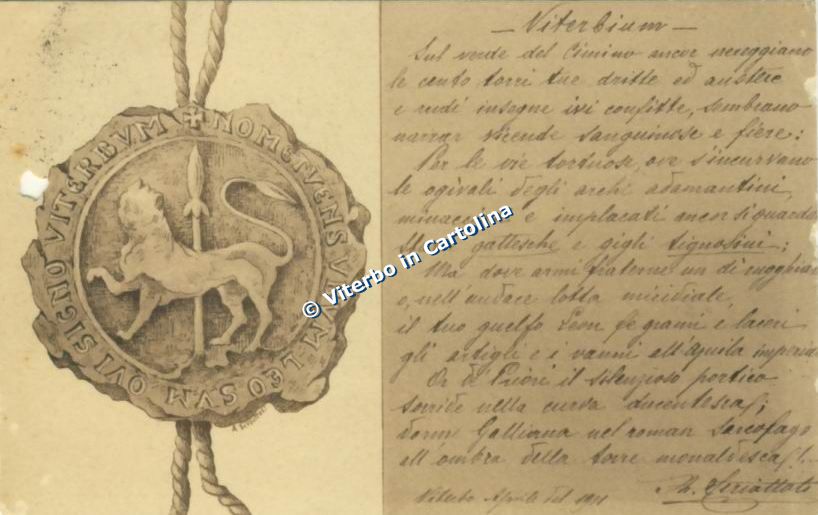 NOMEQVE NSVVM LEO SVM QVI SIGNO VITERBVM
© Viterbo in Cartolina
— Viterbium —
Sul verde del Cimino ancor nereggiano
le cento torri tue dritte ed austere
e rudi insegne ivi confitte, sembrano
narrar vicende sanguinose e fiere:
Per le vie tortuose, ove s'incurvano
le ogivali degli archi adamantini,
minacciosi e implacati ancor si guardano
gattesche e gigli tignosini;
Ma dove armi fraterne un dì rugghiano
o, nell'audace lotta micidiale,
il tuo guelfo Leon fe grami e laceri
gli artigli e i vanni all'Aquila imperiale
Or de' Priori il silenzioso portico
sorride nella curva ducentesca;
dorme Galliana nel roman sarcofago
all'ombra della torre monaldesca!
Viterbo Aprile del 1901